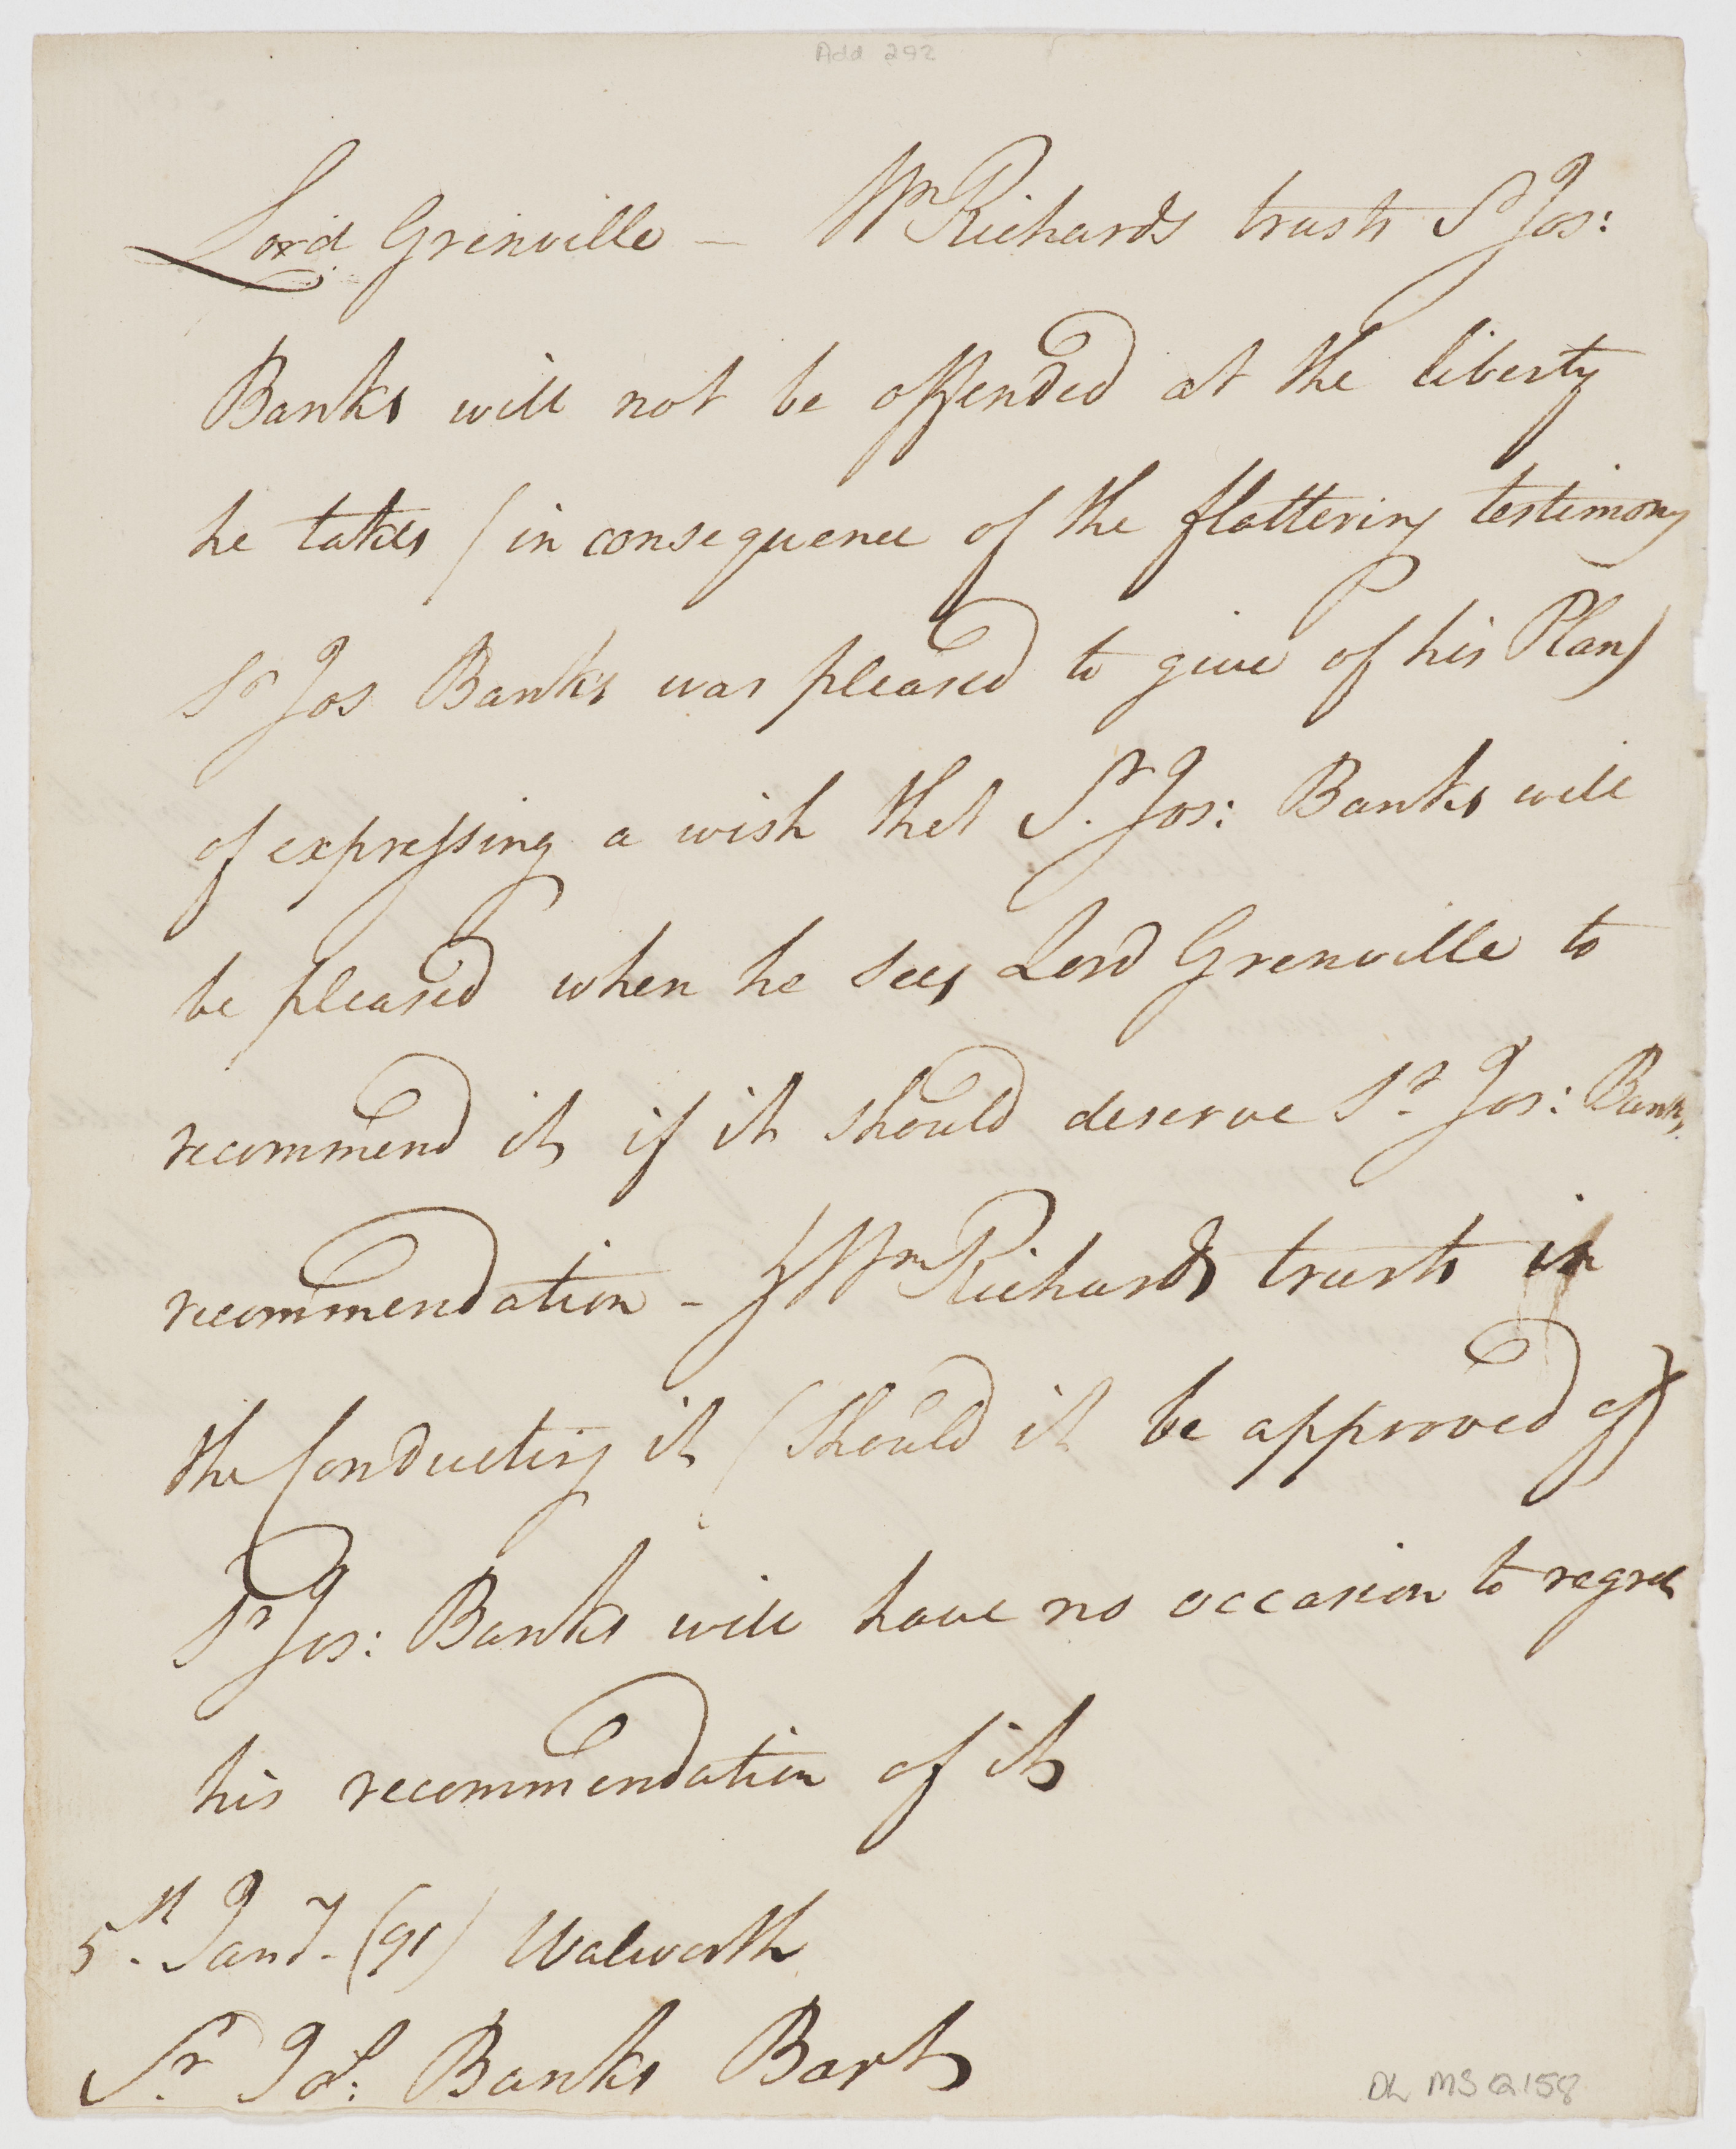 Add 292
Lord Grinville — Wm Richards trusts Sr Jos:
Banks will not be offended at the liberty
he takes (in consequence of the flattering testimony
Sr Jos Banks was pleased to give of his Plan)
of expressing a wish that Sr. Jos: Banks will
be pleased when he sees Lord Grenville to
recommend it if it should deserve Sr. Jos: Banks.
recommendation - & Wm Richards trusts in
the Conducting it (Should it be approved of)
Sr Jos: Banks will have no occasion to regret
his recommendation of it
5th. Jany. (91) Walworth
Sr. Jos: Banks Bart
DL MSQ158